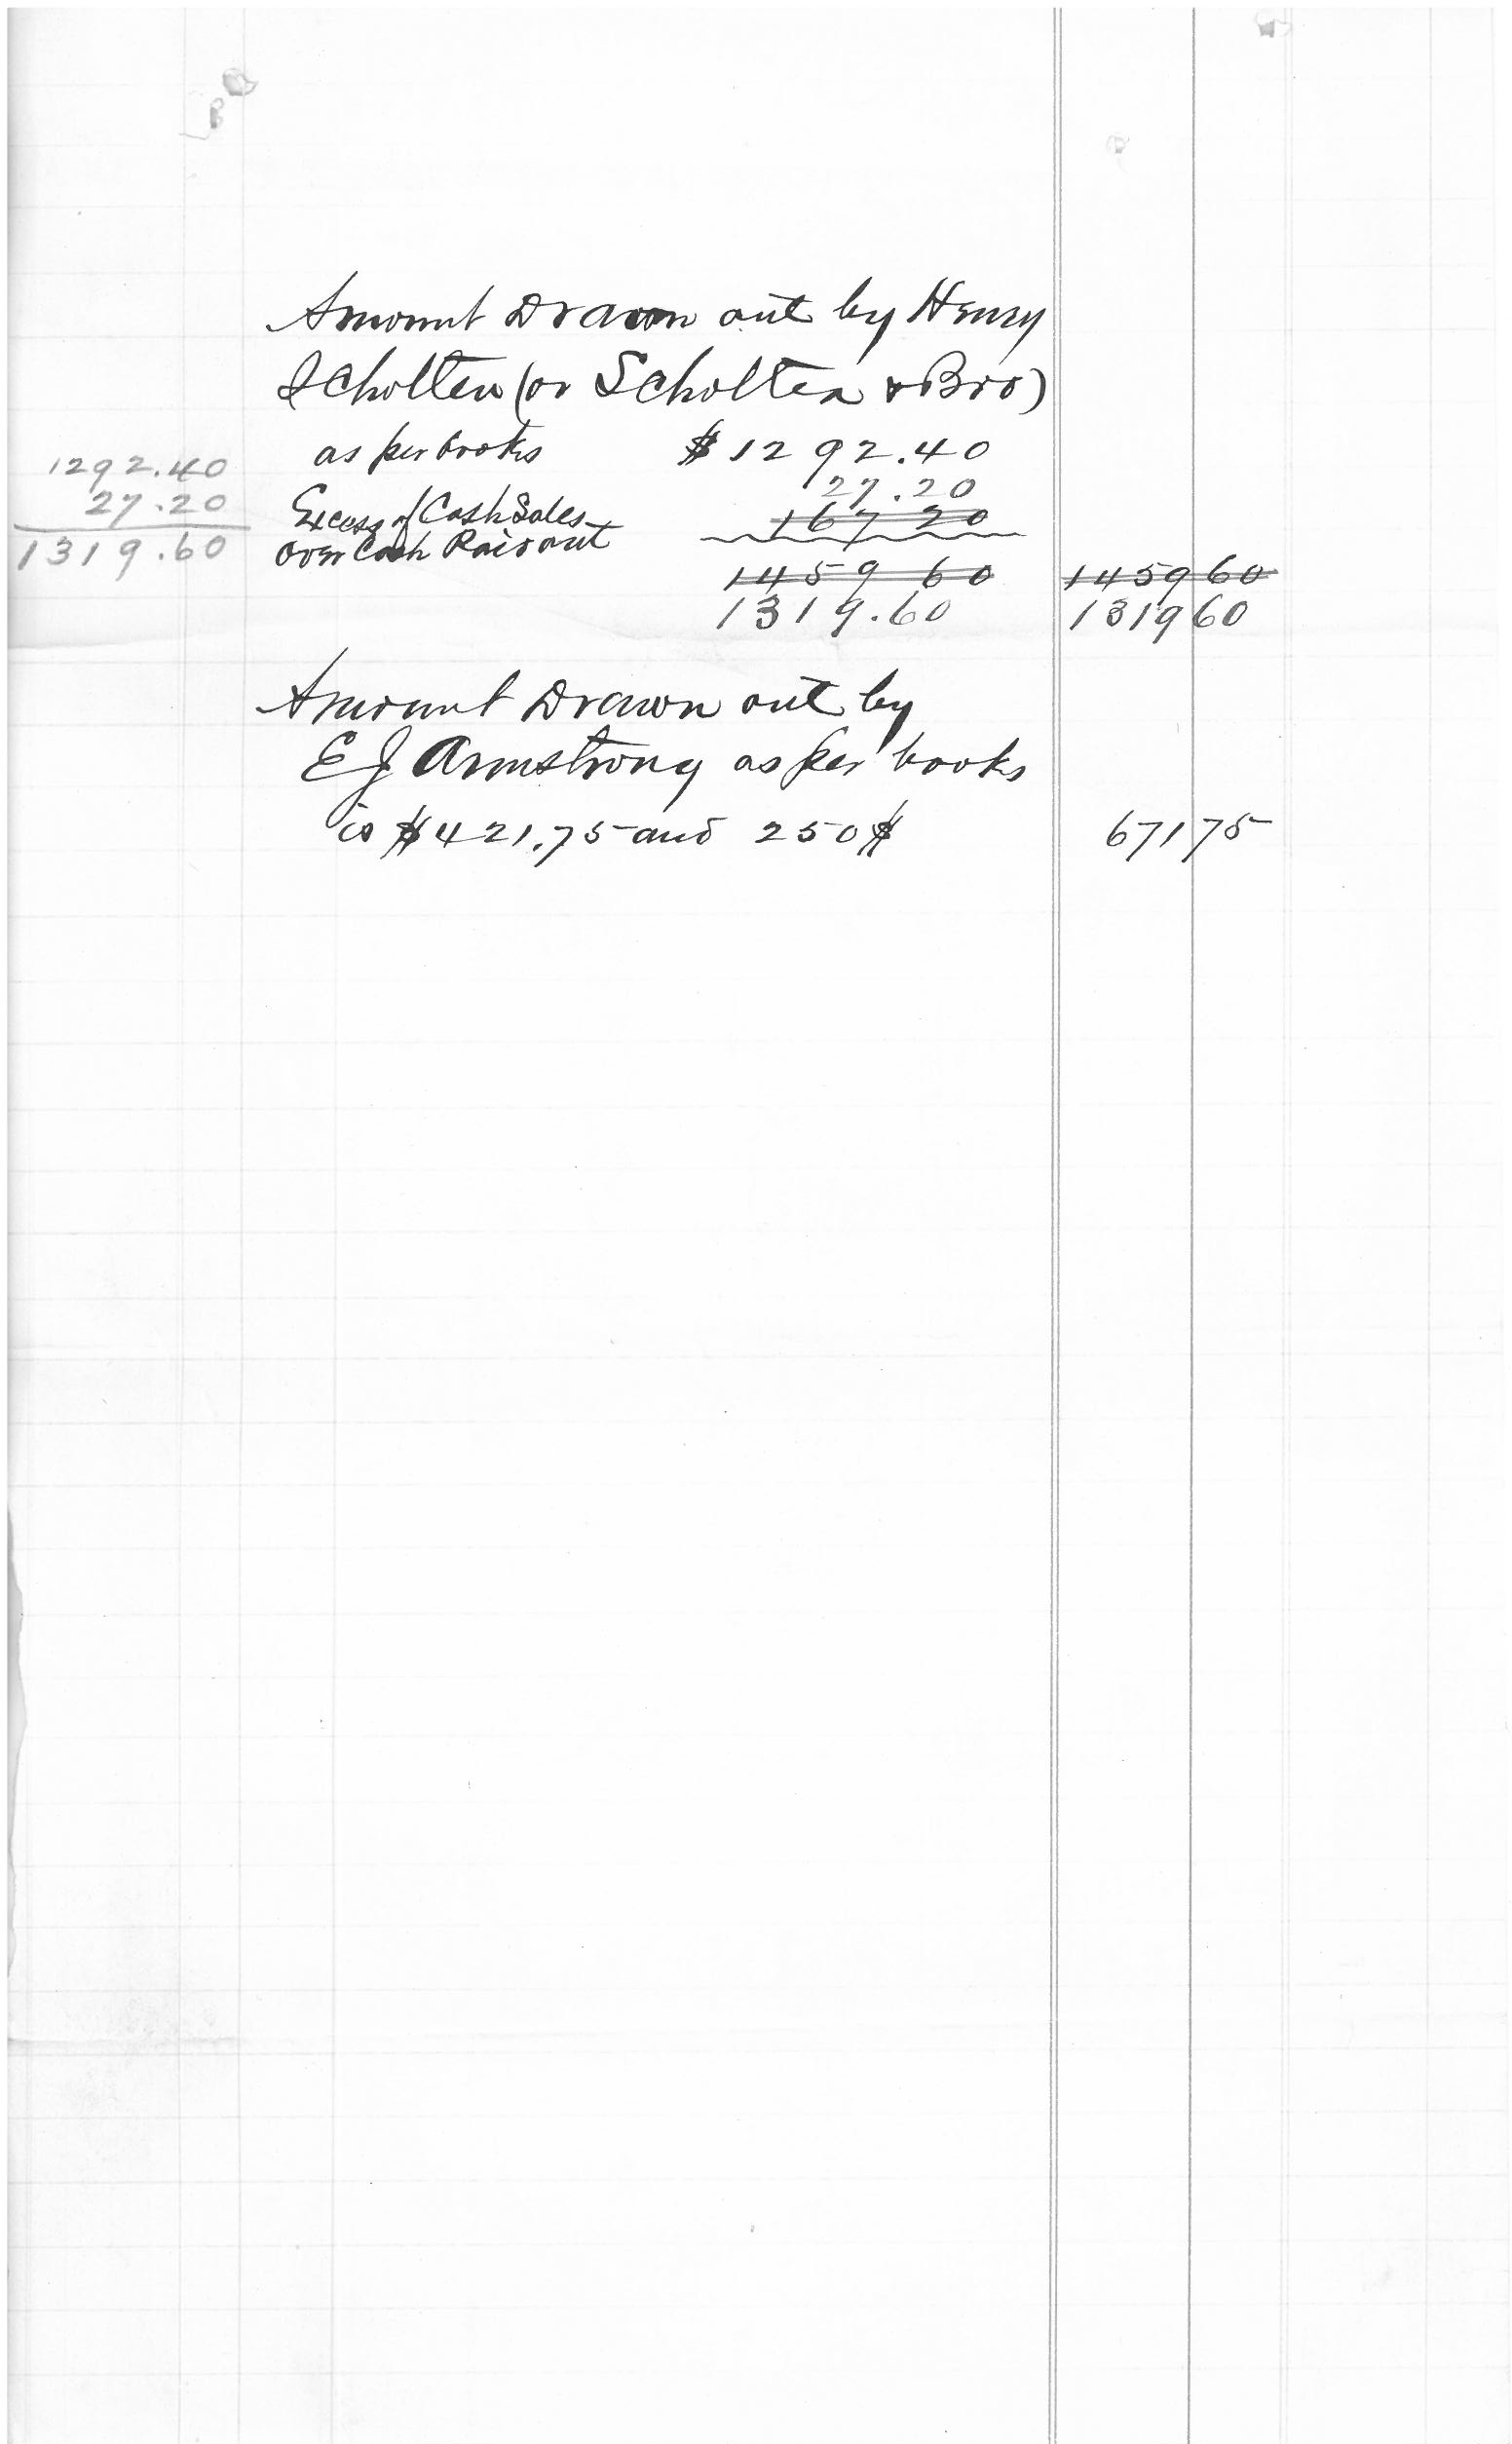 Amount Drawn out by Henry
Scholten (or Scholten & Bro)
as per books $1292.40
1292.40
27.20
27.20
Excess of Cash Sales 167 20
over Cash Paid out
1319.60
1459 60 1459 60
1319.60 1319 60
Amount Drawn out by
E J Armstrong as per books
is $421.75 and 250$ 671 75